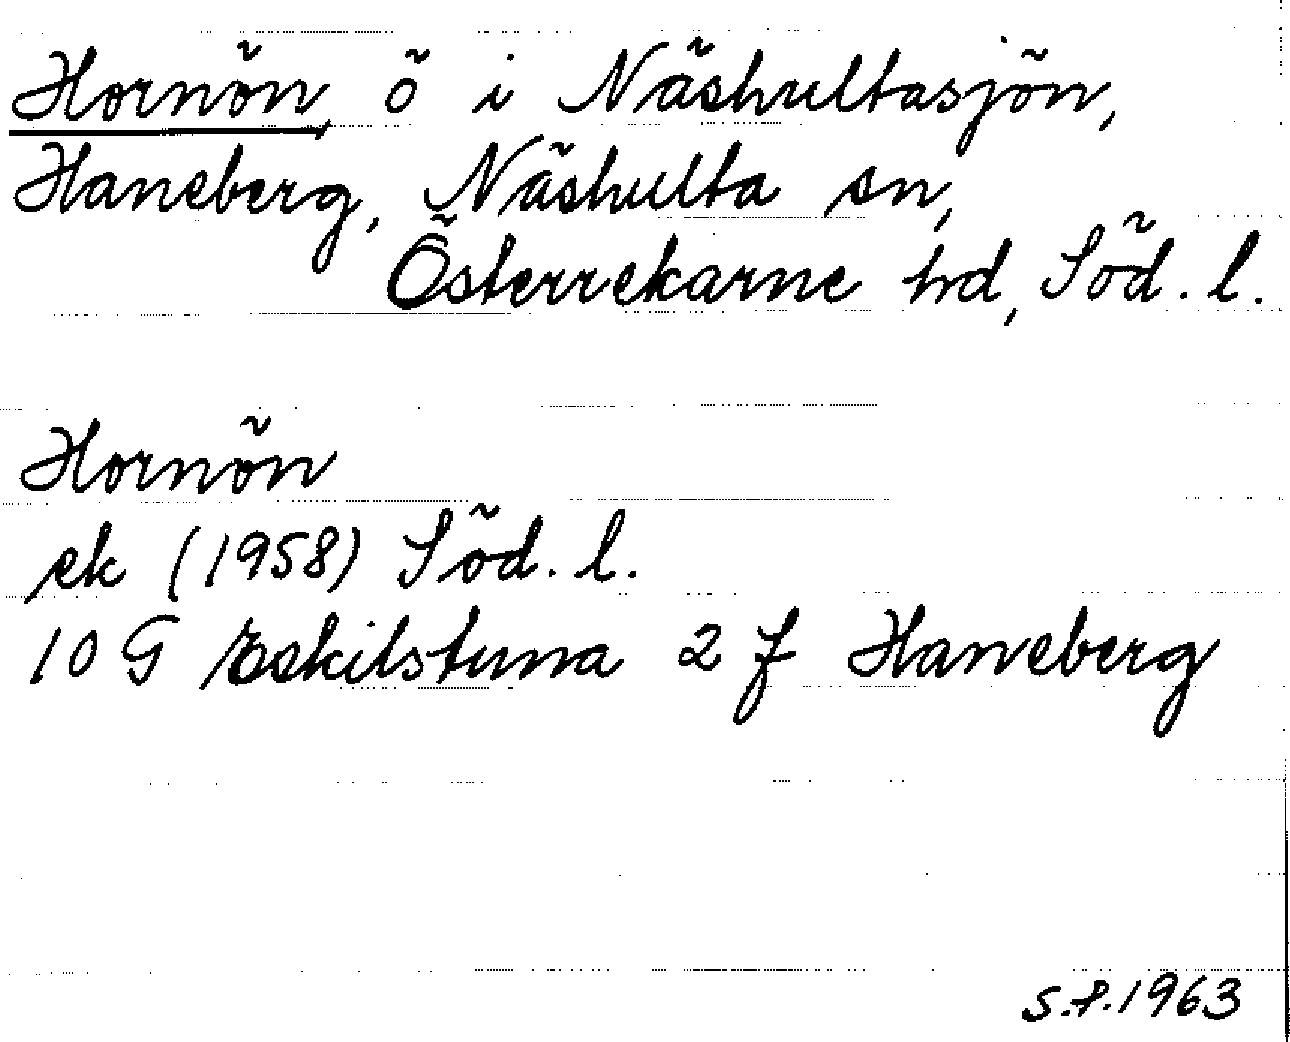 Hornön, ö i Näshultasjön,
Haneberg, Näshulta sn,
Österrekarne hd, Söd. l.
Hornön
ek (1958) Söd. l.
10 G Eskilstuna 2 f Haneberg
S.P. 1963